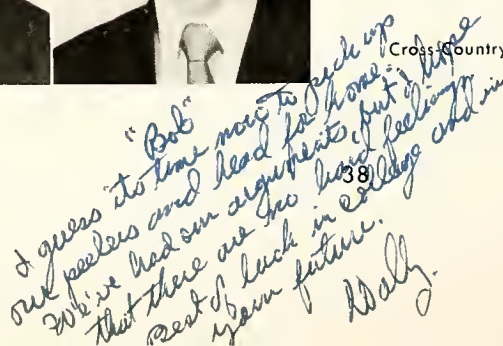 Cross-Country
38
"Bob"
I guess its time now to pick up
our peelers and head for home.
We've had our arguments, but I hope
that there are no hard feelings.
Best of luck in college and in
your future.
Wally.